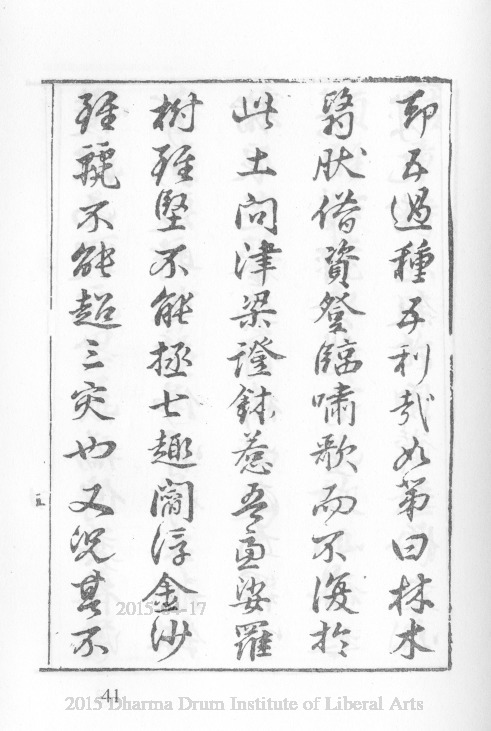 卽五過種五利哉如第曰林木
翳肰借資登臨嘯歌而不復於
此土問津梁證鉢惹吾娑羅
樹雖堅不能拯七趣閻浮金沙
雖麗不能超三灾也又況其不
五
41
2015-04-17
2015 Dharma Drum Institute of Liberal Arts